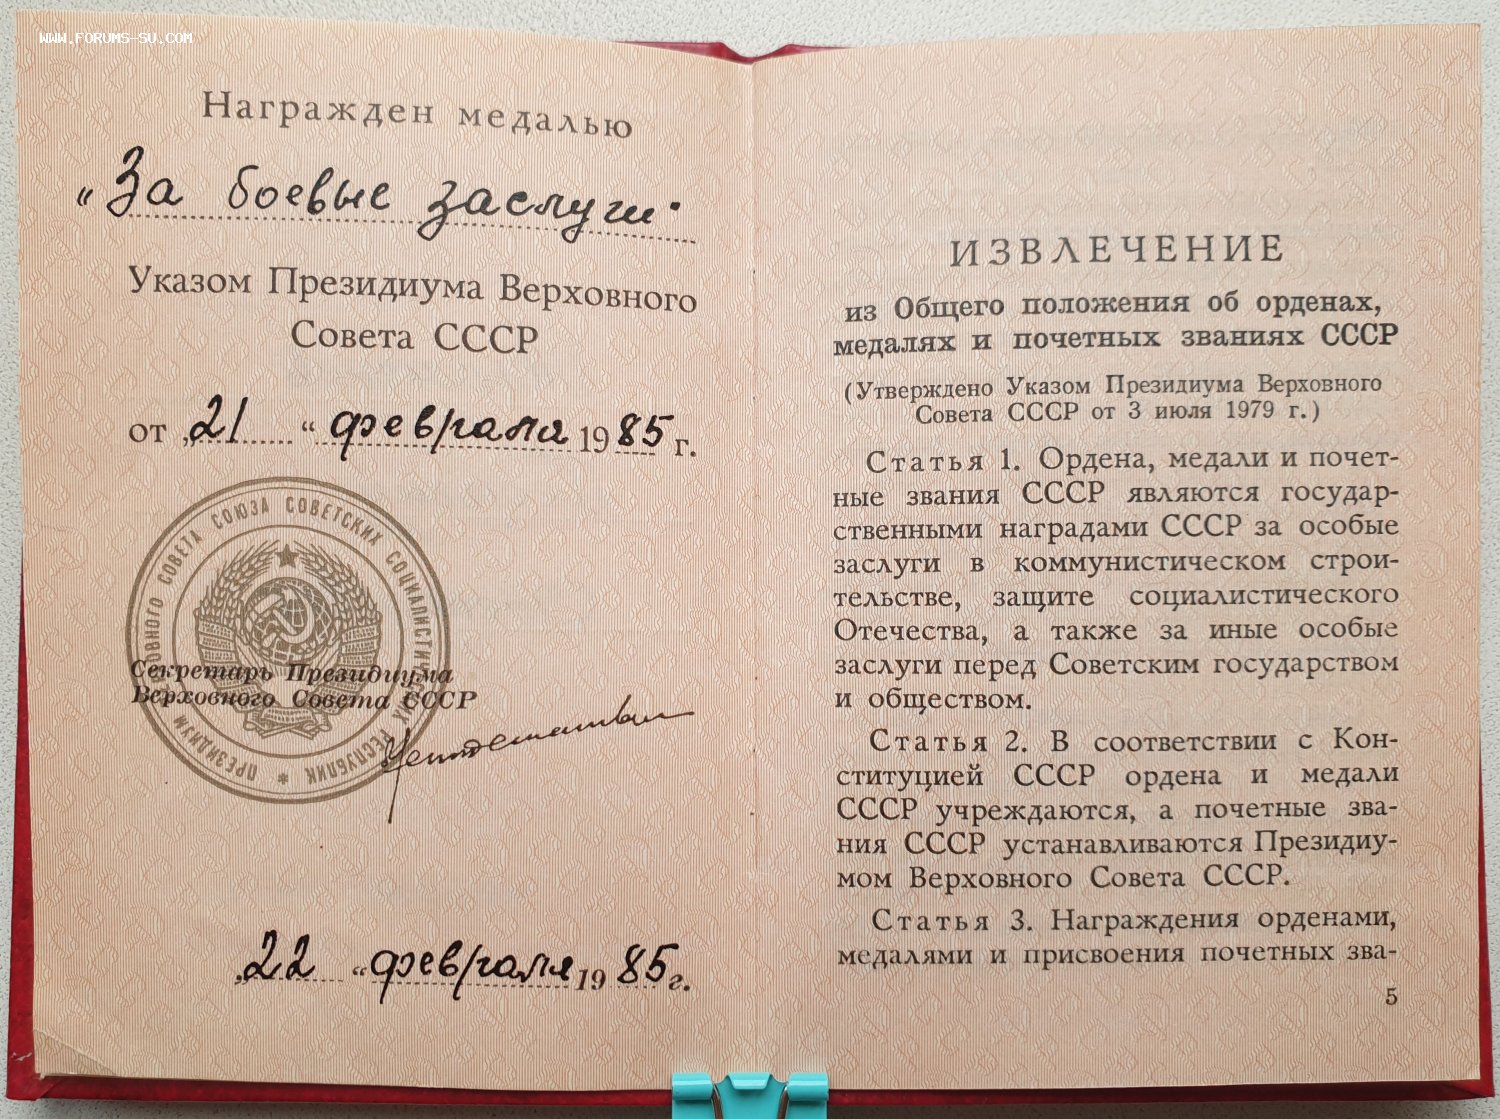 www.forums-su.com
Награжден медалью
„За боевые заслуги"
Указом Президиума Верховного
Совета СССР
от „21 “ февраля 1985 г.
ПРЕЗИДИУМ ВЕРХОВНОГО СОВЕТА СОЮЗА СОВЕТСКИХ СОЦИАЛИСТИЧЕСКИХ РЕСПУБЛИК *
Секретарь Президиума
Верховного Совета СССР
„22 “ февраля 1985 г.
ИЗВЛЕЧЕНИЕ
из Общего положения об орденах,
медалях и почетных званиях СССР
(Утверждено Указом Президиума Верховного
Совета СССР от 3 июля 1979 г.)
Статья 1. Ордена, медали и почет-
ные звания СССР являются государ-
ственными наградами СССР за особые
заслуги в коммунистическом строи-
тельстве, защите социалистического
Отечества, а также за иные особые
заслуги перед Советским государством
и обществом.
Статья 2. В соответствии с Кон-
ституцией СССР ордена и медали
СССР учреждаются, а почетные зва-
ния СССР устанавливаются Президиу-
мом Верховного Совета СССР.
Статья 3. Награждения орденами,
медалями и присвоения почетных зва-
5